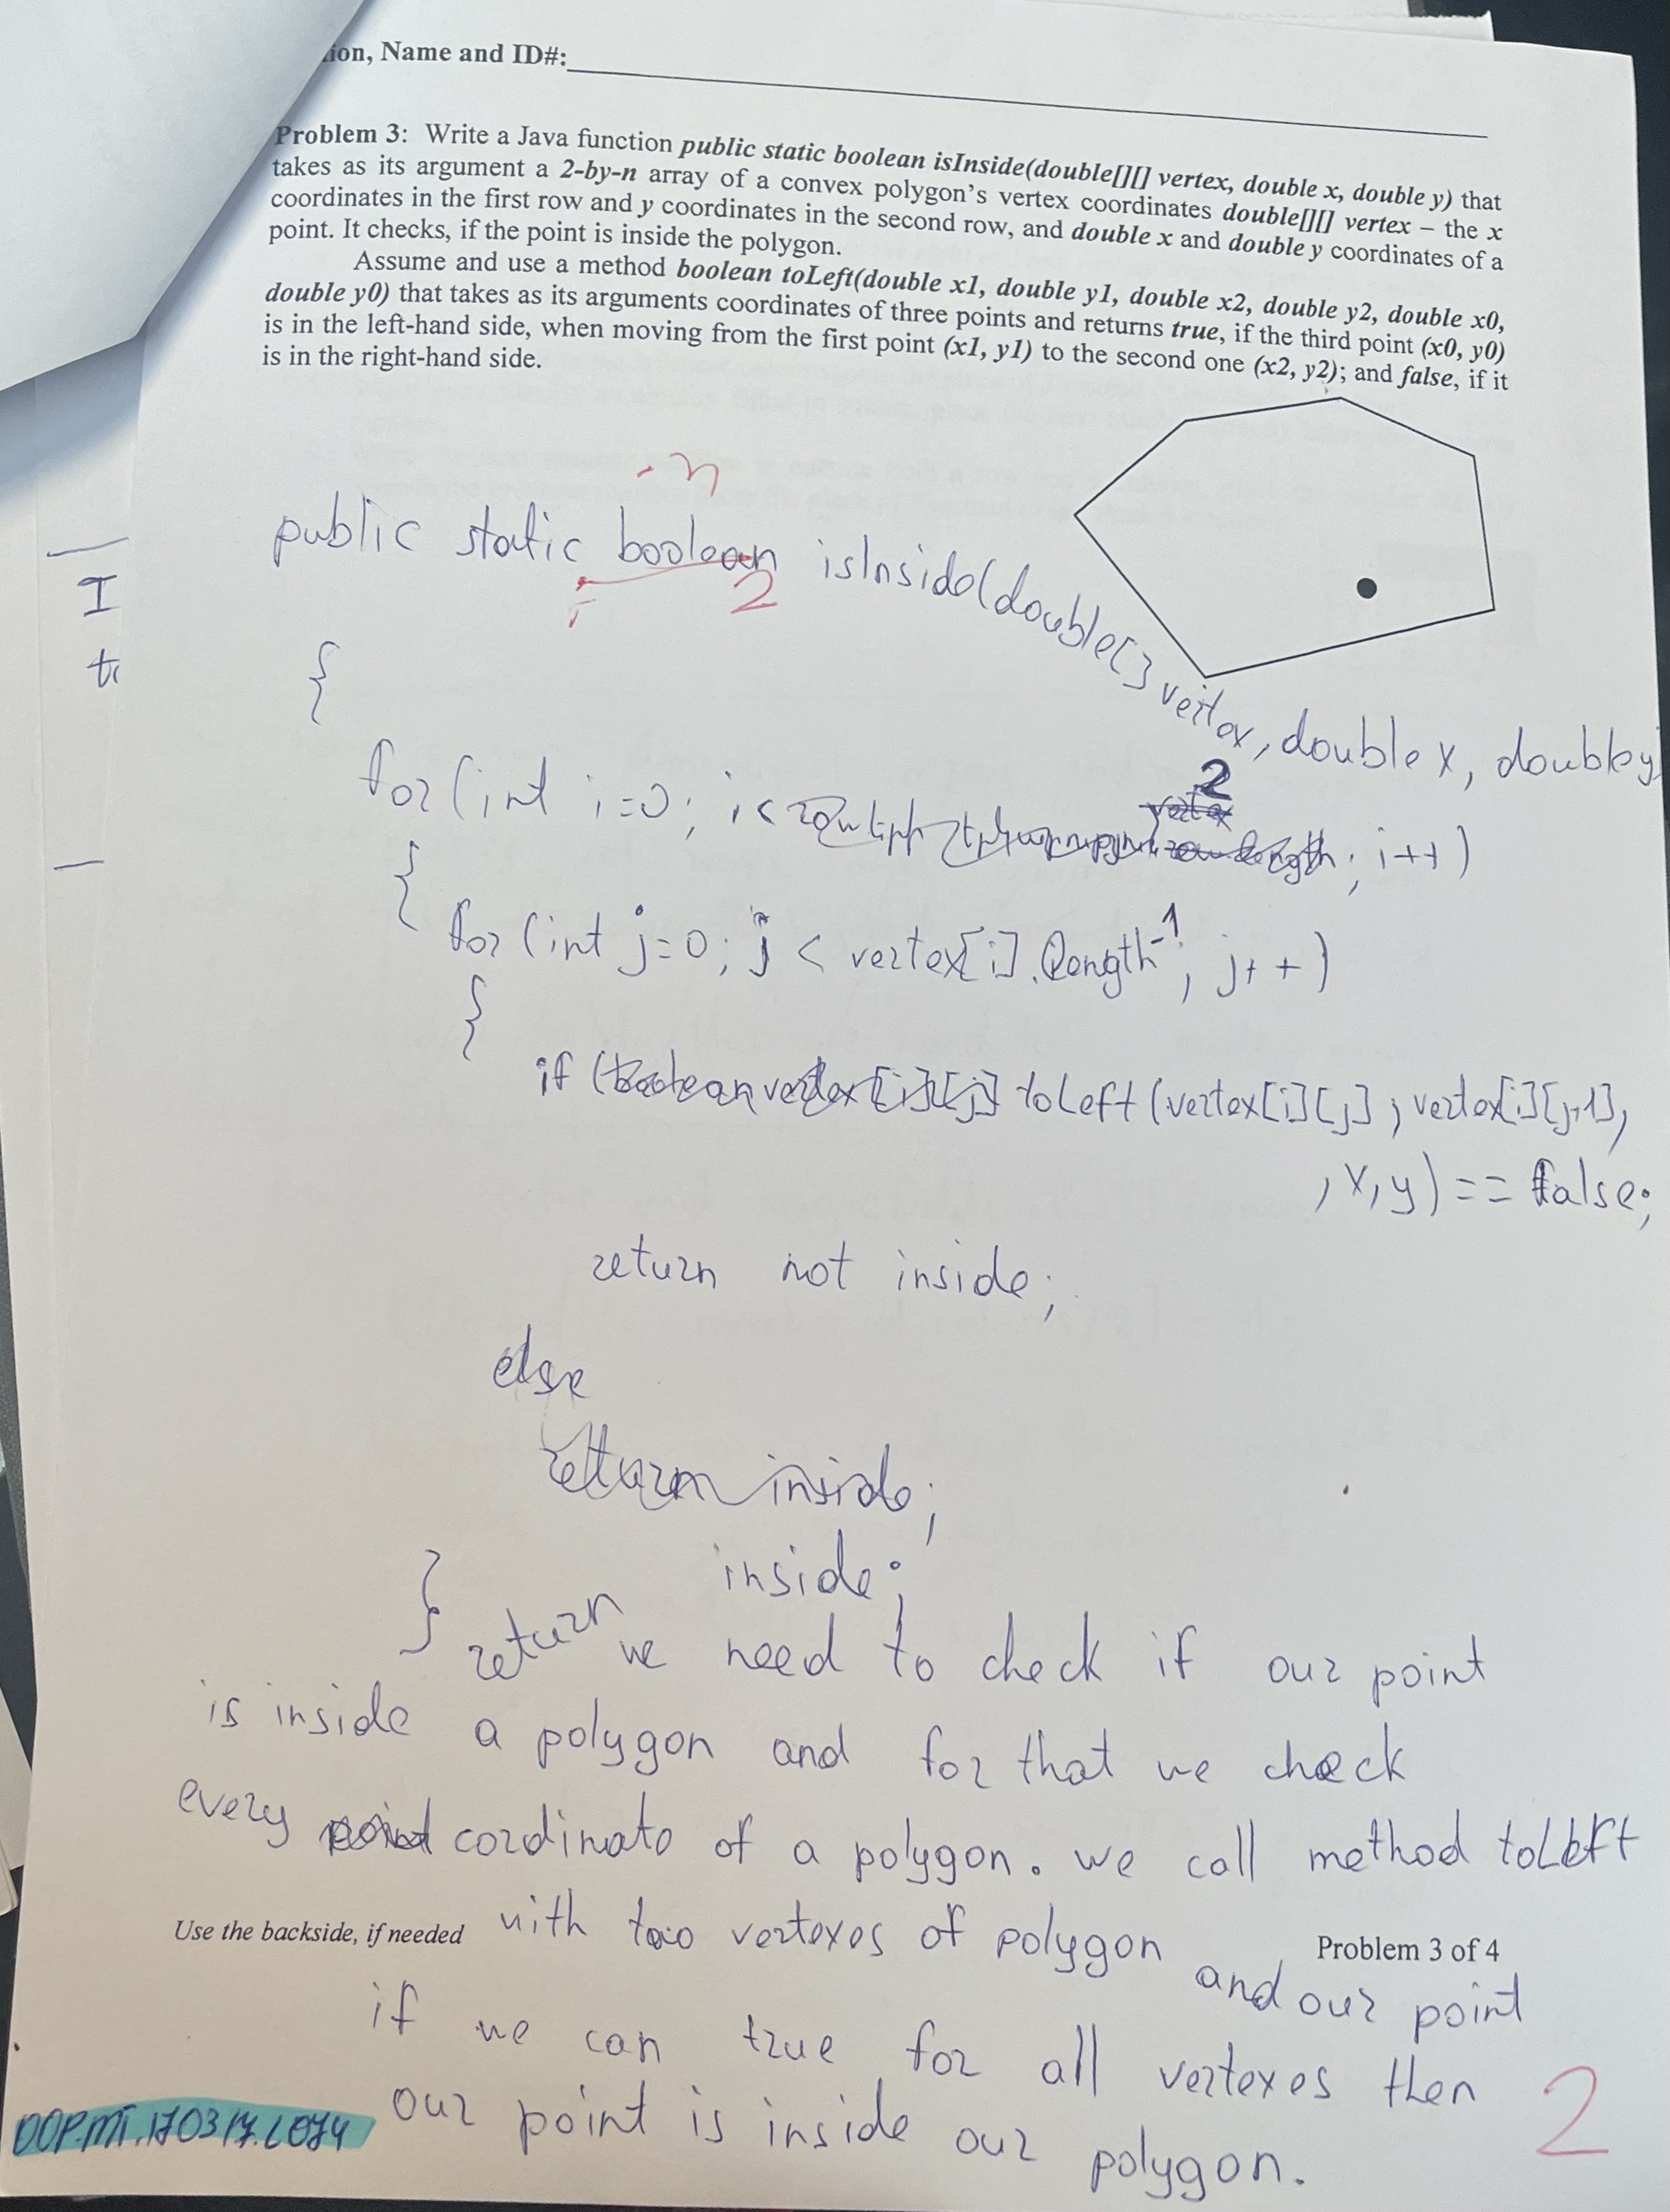 ion, Name and ID#:
Problem 3: Write a Java function public static boolean isInside(double[][] vertex, double x, double y) that
takes as its argument a 2-by-n array of a convex polygon's vertex coordinates double[][] vertex – the x
coordinates in the first row and y coordinates in the second row, and double x and double y coordinates of a
point. It checks, if the point is inside the polygon.
Assume and use a method boolean toLeft(double x1, double y1, double x2, double y2, double x0,
double y0) that takes as its arguments coordinates of three points and returns true, if the third point (x0, y0)
is in the left-hand side, when moving from the first point (x1, y1) to the second one (x2, y2); and false, if it
is in the right-hand side.
n
public static boolean isInside(double[] vertex, double x, double y
2
I
{
for (int i=0; i< 2; i++)
{
for (int j=0; j < vertex[i].length-1; j++)
{
if (toLeft (vertex[i][j], vertex[i][j+1],
, x, y) == false;
return not inside;
else
return inside;
inside;
} return
we need to check if our point
is inside a polygon and for that we check
every point cordinate of a polygon. we call method toLeft
with two vertexes of polygon and our point
Use the backside, if needed
Problem 3 of 4
if we can true for all vertexes then
our point is inside our polygon.
2